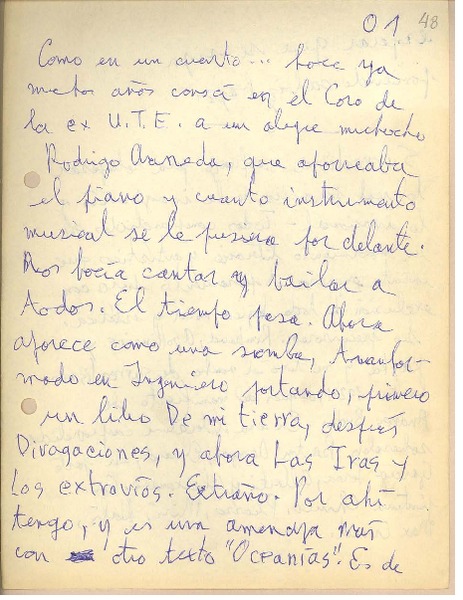 01 48
Como en un cuento... hace ya
muchos años conocí en el Coro de
la ex U.T.E. a un alegre muchacho
Rodrigo Araneda, que aporreaba
el piano y cuanto instrumento
musical se le pusiera por delante.
Nos hacía cantar y bailar a
todos. El tiempo pasa. Ahora
aparece como una sombra, transfor-
mado en Ingeniero portando, primero
un libro De mi tierra, después
Divagaciones, y ahora Las Iras y
los extravíos. Extraño. Por ahí
tengo, y es una amenaza más
con otro texto "Oceanías". Es de